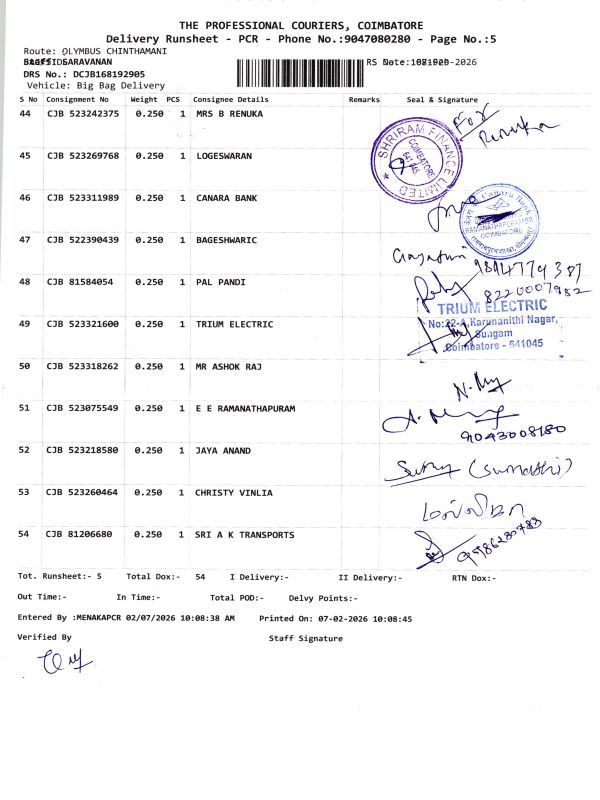 THE PROFESSIONAL COURIERS, COIMBATORE
Delivery Runsheet - PCR - Phone No.:9047080280 - Page No.:5
Route: OLYMBUS CHINTHAMANI
SARAVANAN
DRS No.: DCJB168192905
RS Date: -2026
Vehicle: Big Bag Delivery
S No Consignment No Weight PCS Consignee Details Remarks Seal & Signature
44 CJB 523242375 0.250 1 MRS B RENUKA
For
Renuka
SHRIRAM FINANCE LIMITED
COIMBATORE
641 045
45 CJB 523269768 0.250 1 LOGESWARAN
46 CJB 523311989 0.250 1 CANARA BANK
Canara Bank
COIMBATORE
47 CJB 522390439 0.250 1 BAGESHWARIC
Gayathri 9894774387
48 CJB 81584054 0.250 1 PAL PANDI
8220007982
49 CJB 523321600 0.250 1 TRIUM ELECTRIC
TRIUM ELECTRIC
No:22-A,Karunanithi Nagar,
Sungam
Coimbatore - 641045
50 CJB 523318262 0.250 1 MR ASHOK RAJ
51 CJB 523075549 0.250 1 E E RAMANATHAPURAM
9043008180
52 CJB 523218580 0.250 1 JAYA ANAND
(Sumathi)
53 CJB 523260464 0.250 1 CHRISTY VINLIA
54 CJB 81206680 0.250 1 SRI A K TRANSPORTS
Tot. Runsheet:- 5 Total Dox:- 54 I Delivery:- II Delivery:- RTN Dox:-
Out Time:- In Time:- Total POD:- Delvy Points:-
Entered By :MENAKAPCR 02/07/2026 10:08:38 AM Printed On: 07-02-2026 10:08:45
Verified By Staff Signature